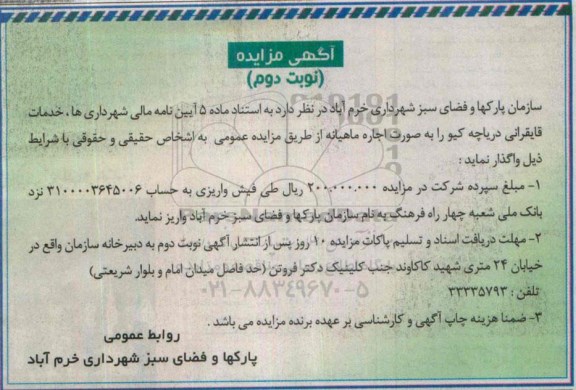 آگهی مزایده
(نوبت دوم)
سازمان پارکها و فضای سبز شهرداری خرم آباد در نظر دارد به استناد ماده ۵ آیین نامه مالی شهرداری ها ، خدمات
قایقرانی دریاچه کیو را به صورت اجاره ماهیانه از طریق مزایده عمومی به اشخاص حقیقی و حقوقی با شرایط
ذیل واگذار نماید :
۱- مبلغ سپرده شرکت در مزایده ۲۰۰.۰۰۰.۰۰۰ ریال طی فیش واریزی به حساب ۳۱۰۰۰۰۳۶۴۵۰۰۶ نزد
بانک ملی شعبه چهار راه فرهنگ به نام سازمان پارکها و فضای سبز خرم آباد واریز نماید.
۲- مهلت دریافت اسناد و تسلیم پاکات مزایده ۱۰ روز پس از انتشار آگهی نوبت دوم به دبیرخانه سازمان واقع در
خیابان ۲۴ متری شهید کاکاوند جنب کلینیک دکتر فروتن (حد فاصل میدان امام و بلوار شریعتی)
تلفن : ۳۳۳۳۵۷۹۳
۰۲۱-۸۸۳۴۹۶۷۰-۵
۳- ضمنا هزینه چاپ آگهی و کارشناسی بر عهده برنده مزایده می باشد .
روابط عمومی
پارکها و فضای سبز شهرداری خرم آباد